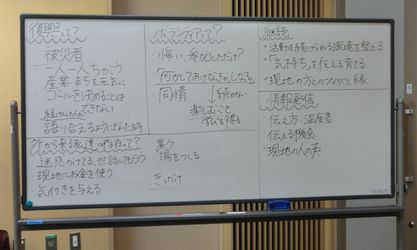 復興って?
被災者
一人一人ちがう
産業 まちを元気に
ゴールを決めることは
できない
語り伝えるようになった時
外から来る私達の存在って?
迷惑かけてる、世話にもなう
現地にお金を使う
気付きを与える
ボランティアって?
悔い、参加しただけ?
「何かしてあげなきゃ」しなきゃ
同情
続かない
楽しむこと
学びを得る
集う
場をつくる
きっかけ
継続
・活動を続けられる環境を整える
・「気持ち」を伝える 育てる
・現地の方とのつながり、縁
情報発信
・伝え方 温度差
伝える機会
・現地の人の声